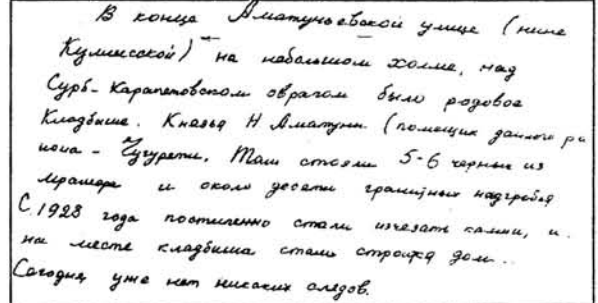 В конце Аматуньевской улице (ныне
Кулисской) на небольшом холме, над
Сурб-Карапетовском оврагом было родовое
Кладбише. Князья Н. Аматуни. (помещик даного ра
иона - Чугурети. Там стояли 5-6 черных из
мрамора и около десети гранитных надгробья
С. 1928 года постипенно стали изчезать камни, и.
на месте кладбиша стали строитҗ дом..
Сегодня уже нет никаких следов.